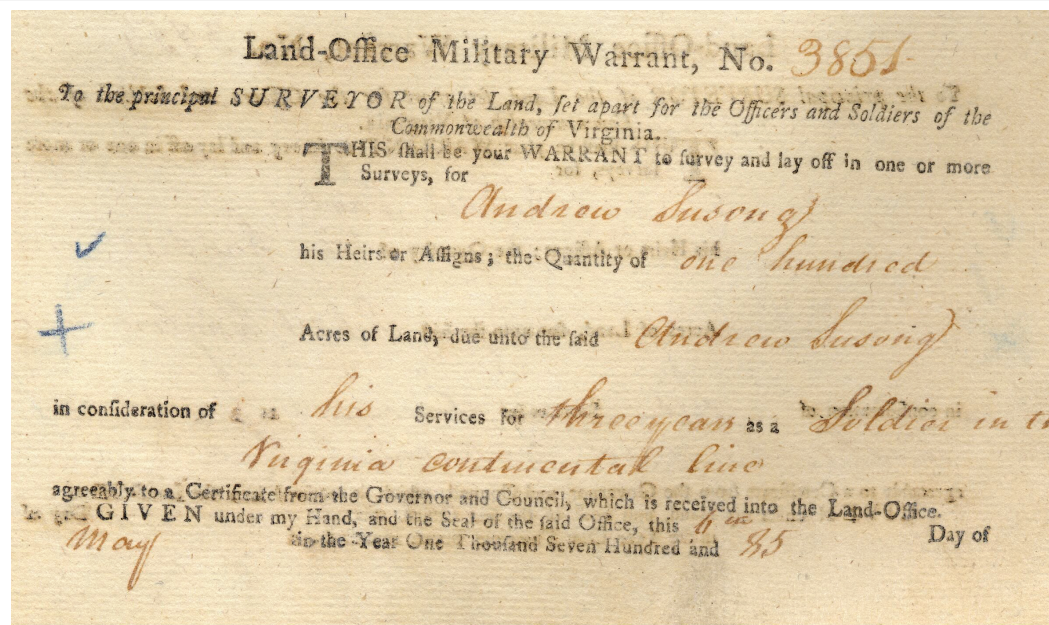 Land-Office Military Warrant, No. 3851
To the principal SURVEYOR of the Land, ſet apart for the Officers and Soldiers of the
Commonwealth of Virginia.
THIS ſhall be your WARRANT to ſurvey and lay off in one or more
Surveys, for
Andrew Susong
his Heirs or Aſſigns; the Quantity of one hundred
Acres of Land, due unto the ſaid Andrew Susong
in conſideration of his Services for three years as a Soldier in
Virginia continental line
agreeably to a Certificate from the Governor and Council, which is received into the Land-Office.
GIVEN under my Hand, and the Seal of the ſaid Office, this 6th Day of
May in the Year One Thouſand Seven Hundred and 85